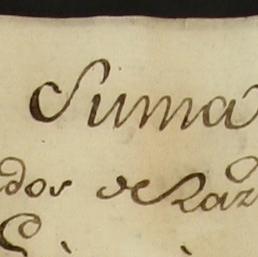 Suma
dos de Raz